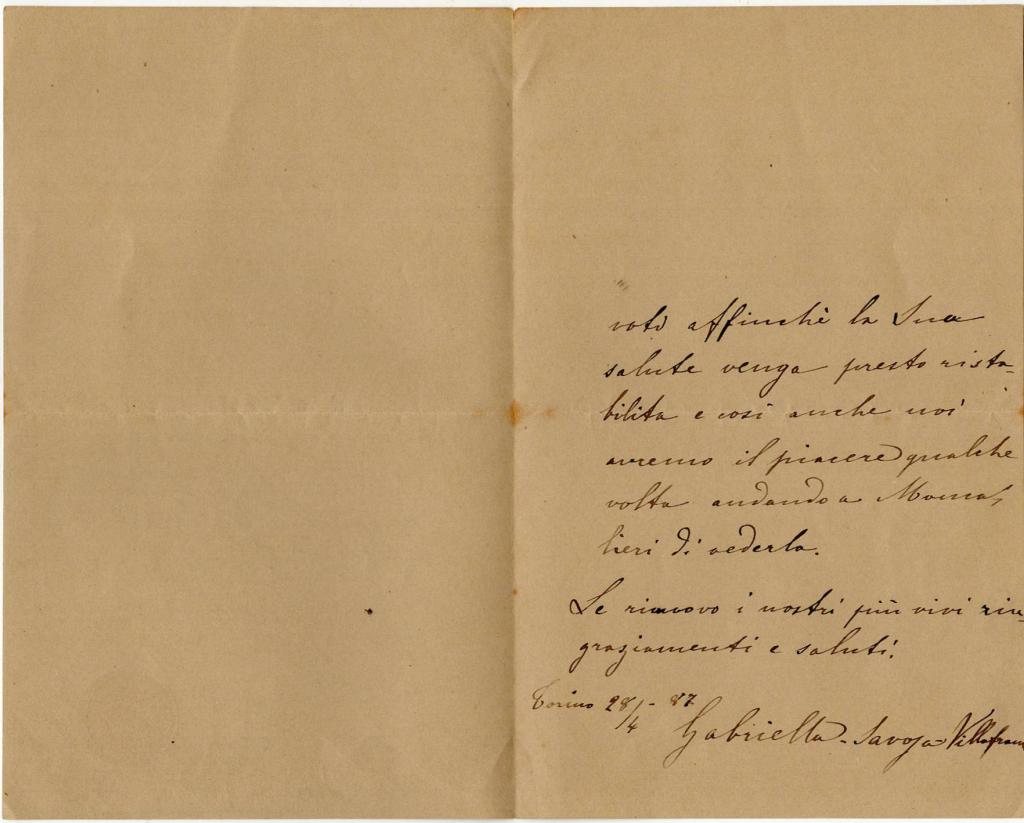 voti affinchè la Sua
salute venga presto rista-
bilita e così anche noi
avremo il piacere qualche
volta andando a Monca-
lieri di vederla.
Le rinnovo i nostri più vivi rin-
graziamenti e saluti.
Torino 28/4 - 87
Gabriella - Savoja = Villafran